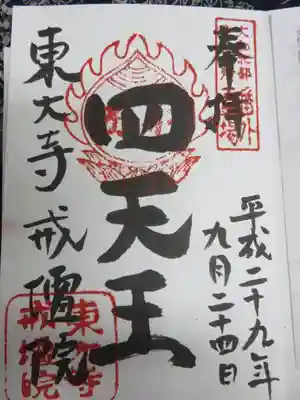 奉拝
平成二十九年
九月二十四日
四天王
東大寺戒壇院
東大寺
戒壇院